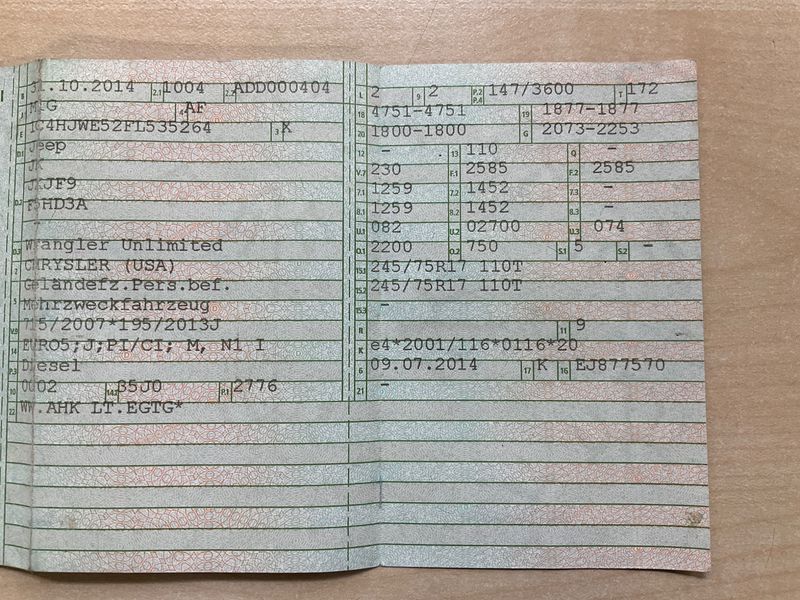 B 31.10.2014 2.1 1004 2.2 ADD000404
J M1G 4 AF
E 1C4HJWE52FL535264 3 K
D.1 Jeep
JK
D.2 JKJF9
F5HD3A
D.3 Wrangler Unlimited
2 CHRYSLER (USA)
5 Geländefz.Pers.bef.
Mehrzweckfahrzeug
V.9 715/2007*195/2013J
14 EURO5;J;PI/CI; M, N1 I
P.3 Diesel
10 0002 14.1 35J0 P.1 2776
22 WW.AHK LT.EGTG*
L 2 9 2 P.2 P.4 147/3600 T 172
18 4751-4751 19 1877-1877
20 1800-1800 G 2073-2253
12 - 13 110 Q -
V.7 230 F.1 2585 F.2 2585
7.1 1259 7.2 1452 7.3 -
8.1 1259 8.2 1452 8.3 -
U.1 082 U.2 02700 U.3 074
O.1 2200 O.2 750 S.1 5 S.2 -
15.1 245/75R17 110T
15.2 245/75R17 110T
15.3 -
R 11 9
K e4*2001/116*0116*20
6 09.07.2014 17 K 16 EJ877570
21 -